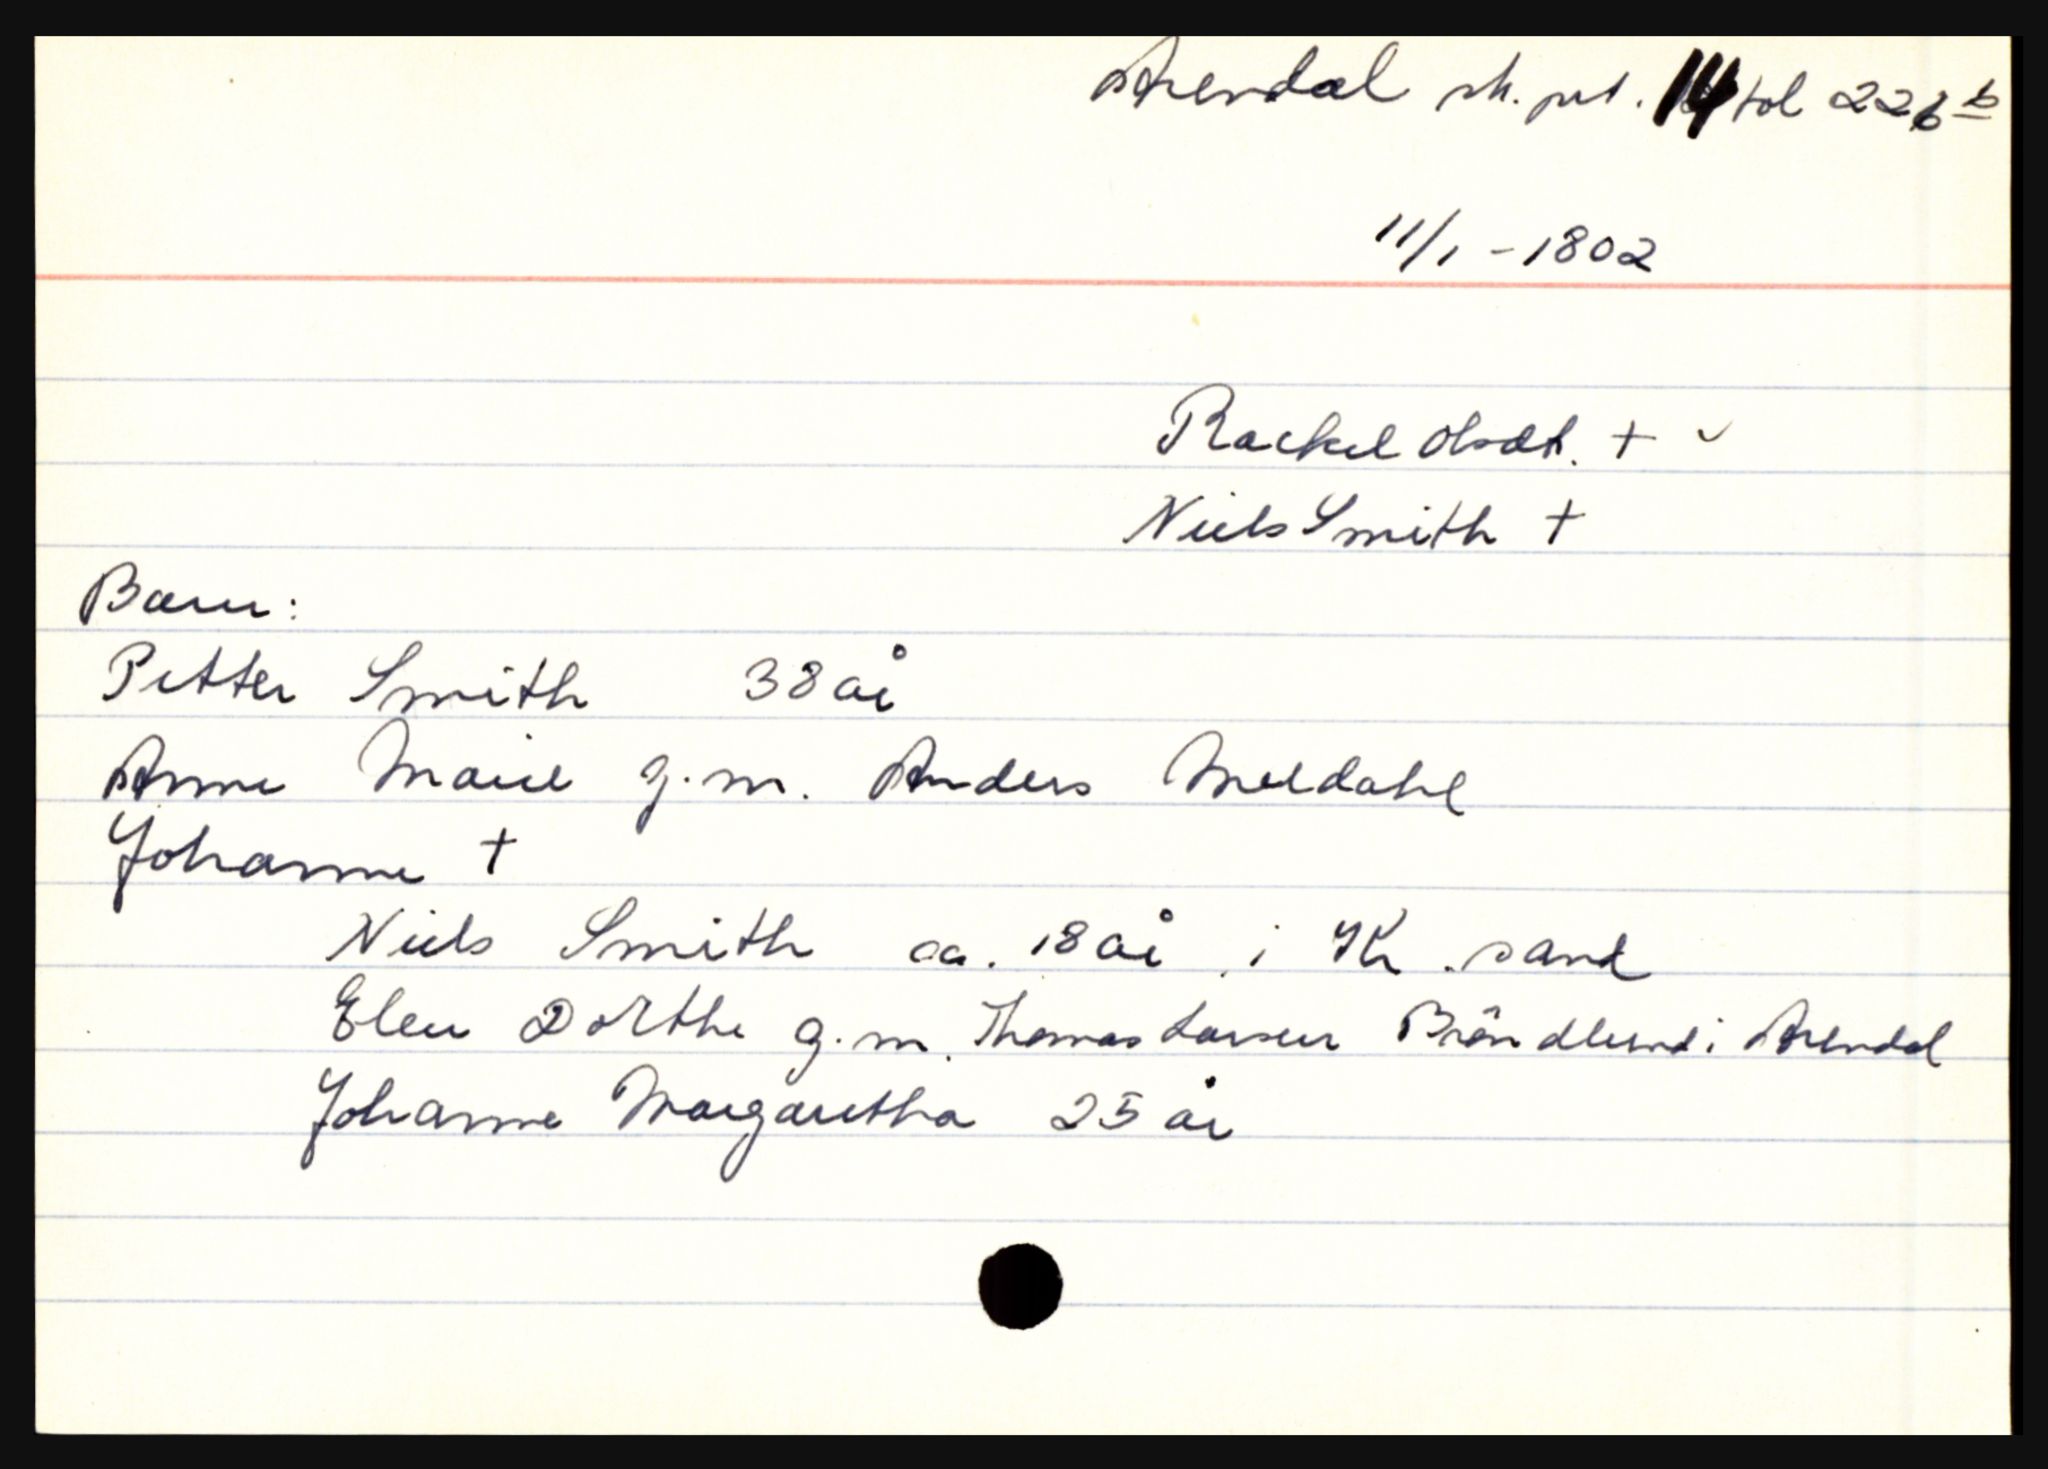 Arendal sk. prt. 14 fol 226 b
11/1 - 1802
Rackel Olsdt. + ✓
Niels Smith +
Barn:
Petter Smith 38 år
Anne Marie g.m. Anders Meldahl
Johanne +
Niels Smith ca. 18 år i Kr. sand
Elen Dorthe g.m. Thomas Larsen Bröndlund i Arendal
Johanne Margaretha 25 år